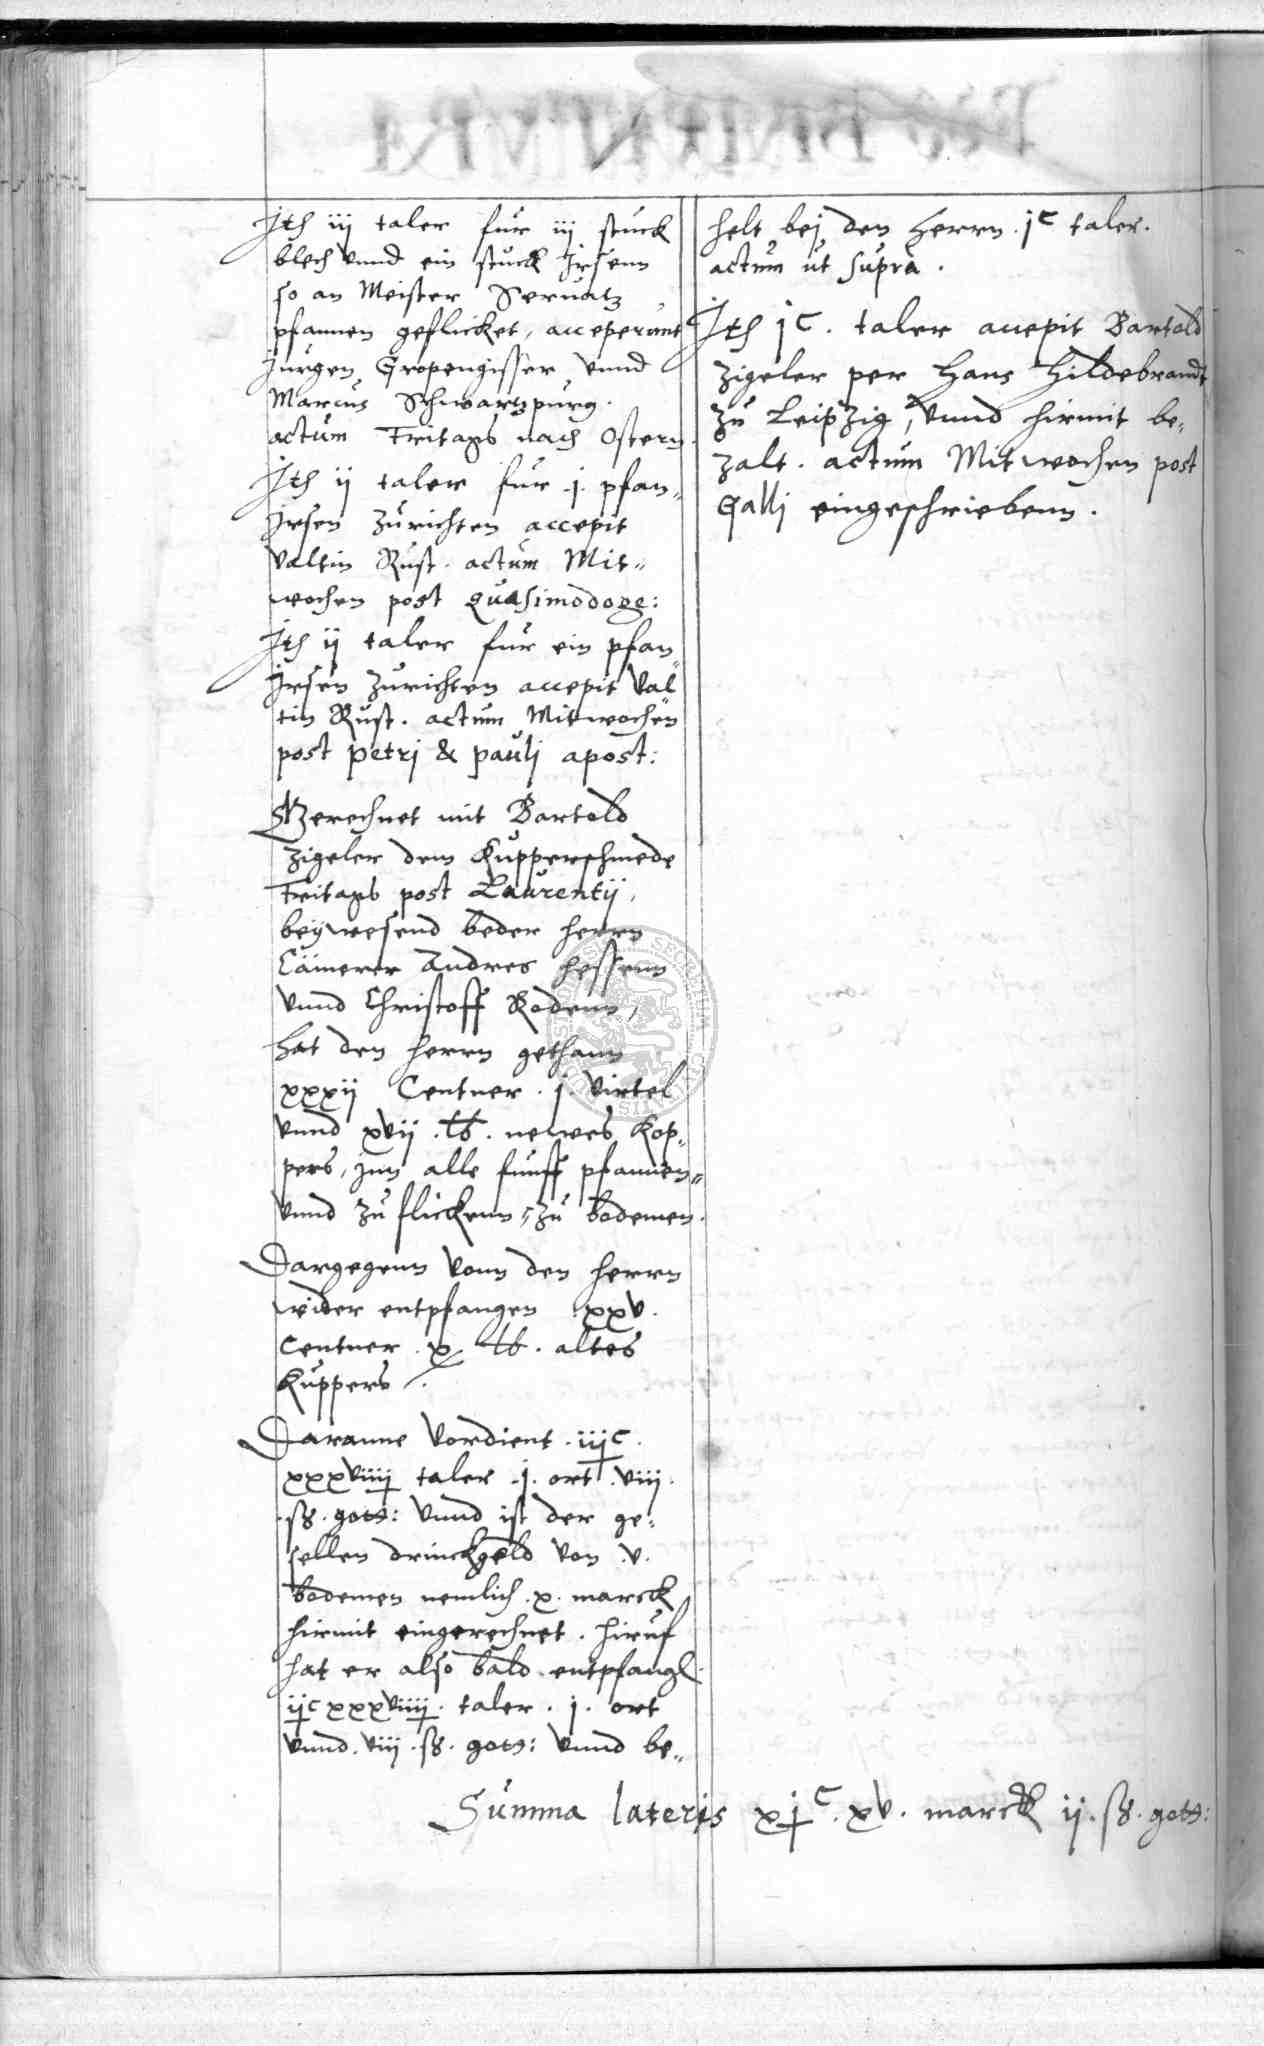 Ith iij taler fur iij stuck
blech vnnd ein stuck Irsenn
so an Meister Seruatz
pfannen geflicket, acceperunt
Jurgen Gropengisser vnnd
Marcus Schwartzpurg.
actum Freitags nach Ostern.
Ith ij taler fur .j. pfan„
Irsen zurichten accepit
Valtin Rust. actum Mit„
wochen post quasimodoge:
Ith ij taler fur ein pfan„
Irsen zurichten accepit Val„
tin Rust. actum Mitwochen
post petrj & paulj apost:
Gerechnet mit Bartold
Zigeler dem Kupperschmede
Freitags post Laurentij,
beywesend beder herrn
Cämerer Andres Hessenn
vnnd Christoff Rodenn,
hat den herrn gethann
xxxij Centner .j. virtel
vnnd xvij .lb. newes Kop„
pers, Inn alle funff pfannen„
vnnd zu flickenn„ zu bodemen.
Dargegenn vonn den herrn
wider entpfangen .xxv.
Centner .x. lb. altes
Kuppers.
Daranne vordient .iijC.
xxxviiij taler .j. ort .viij.
.ss. gots: vnnd ist der ge„
sellen drinckgeld von .v.
bodemen nemlich .x. marck
hirmit eingerechnet. hiruf
hat er also bald entpfangl.
ijC xxxviiij. taler .j. ort
vnnd .viij .ss. gots: vnnd be„
helt bej den Herrn .jC taler.
actum ut supra.
Ith jC. taler accepit Bartold
Zigeler per Hans Hildebrandt
zu Leipzig, vnnd hirmit be„
zalt. actum Mitwochen post
Gallj eingeschriebenn.
Summa lateris xjC. xv. marck ij .ss. gots: